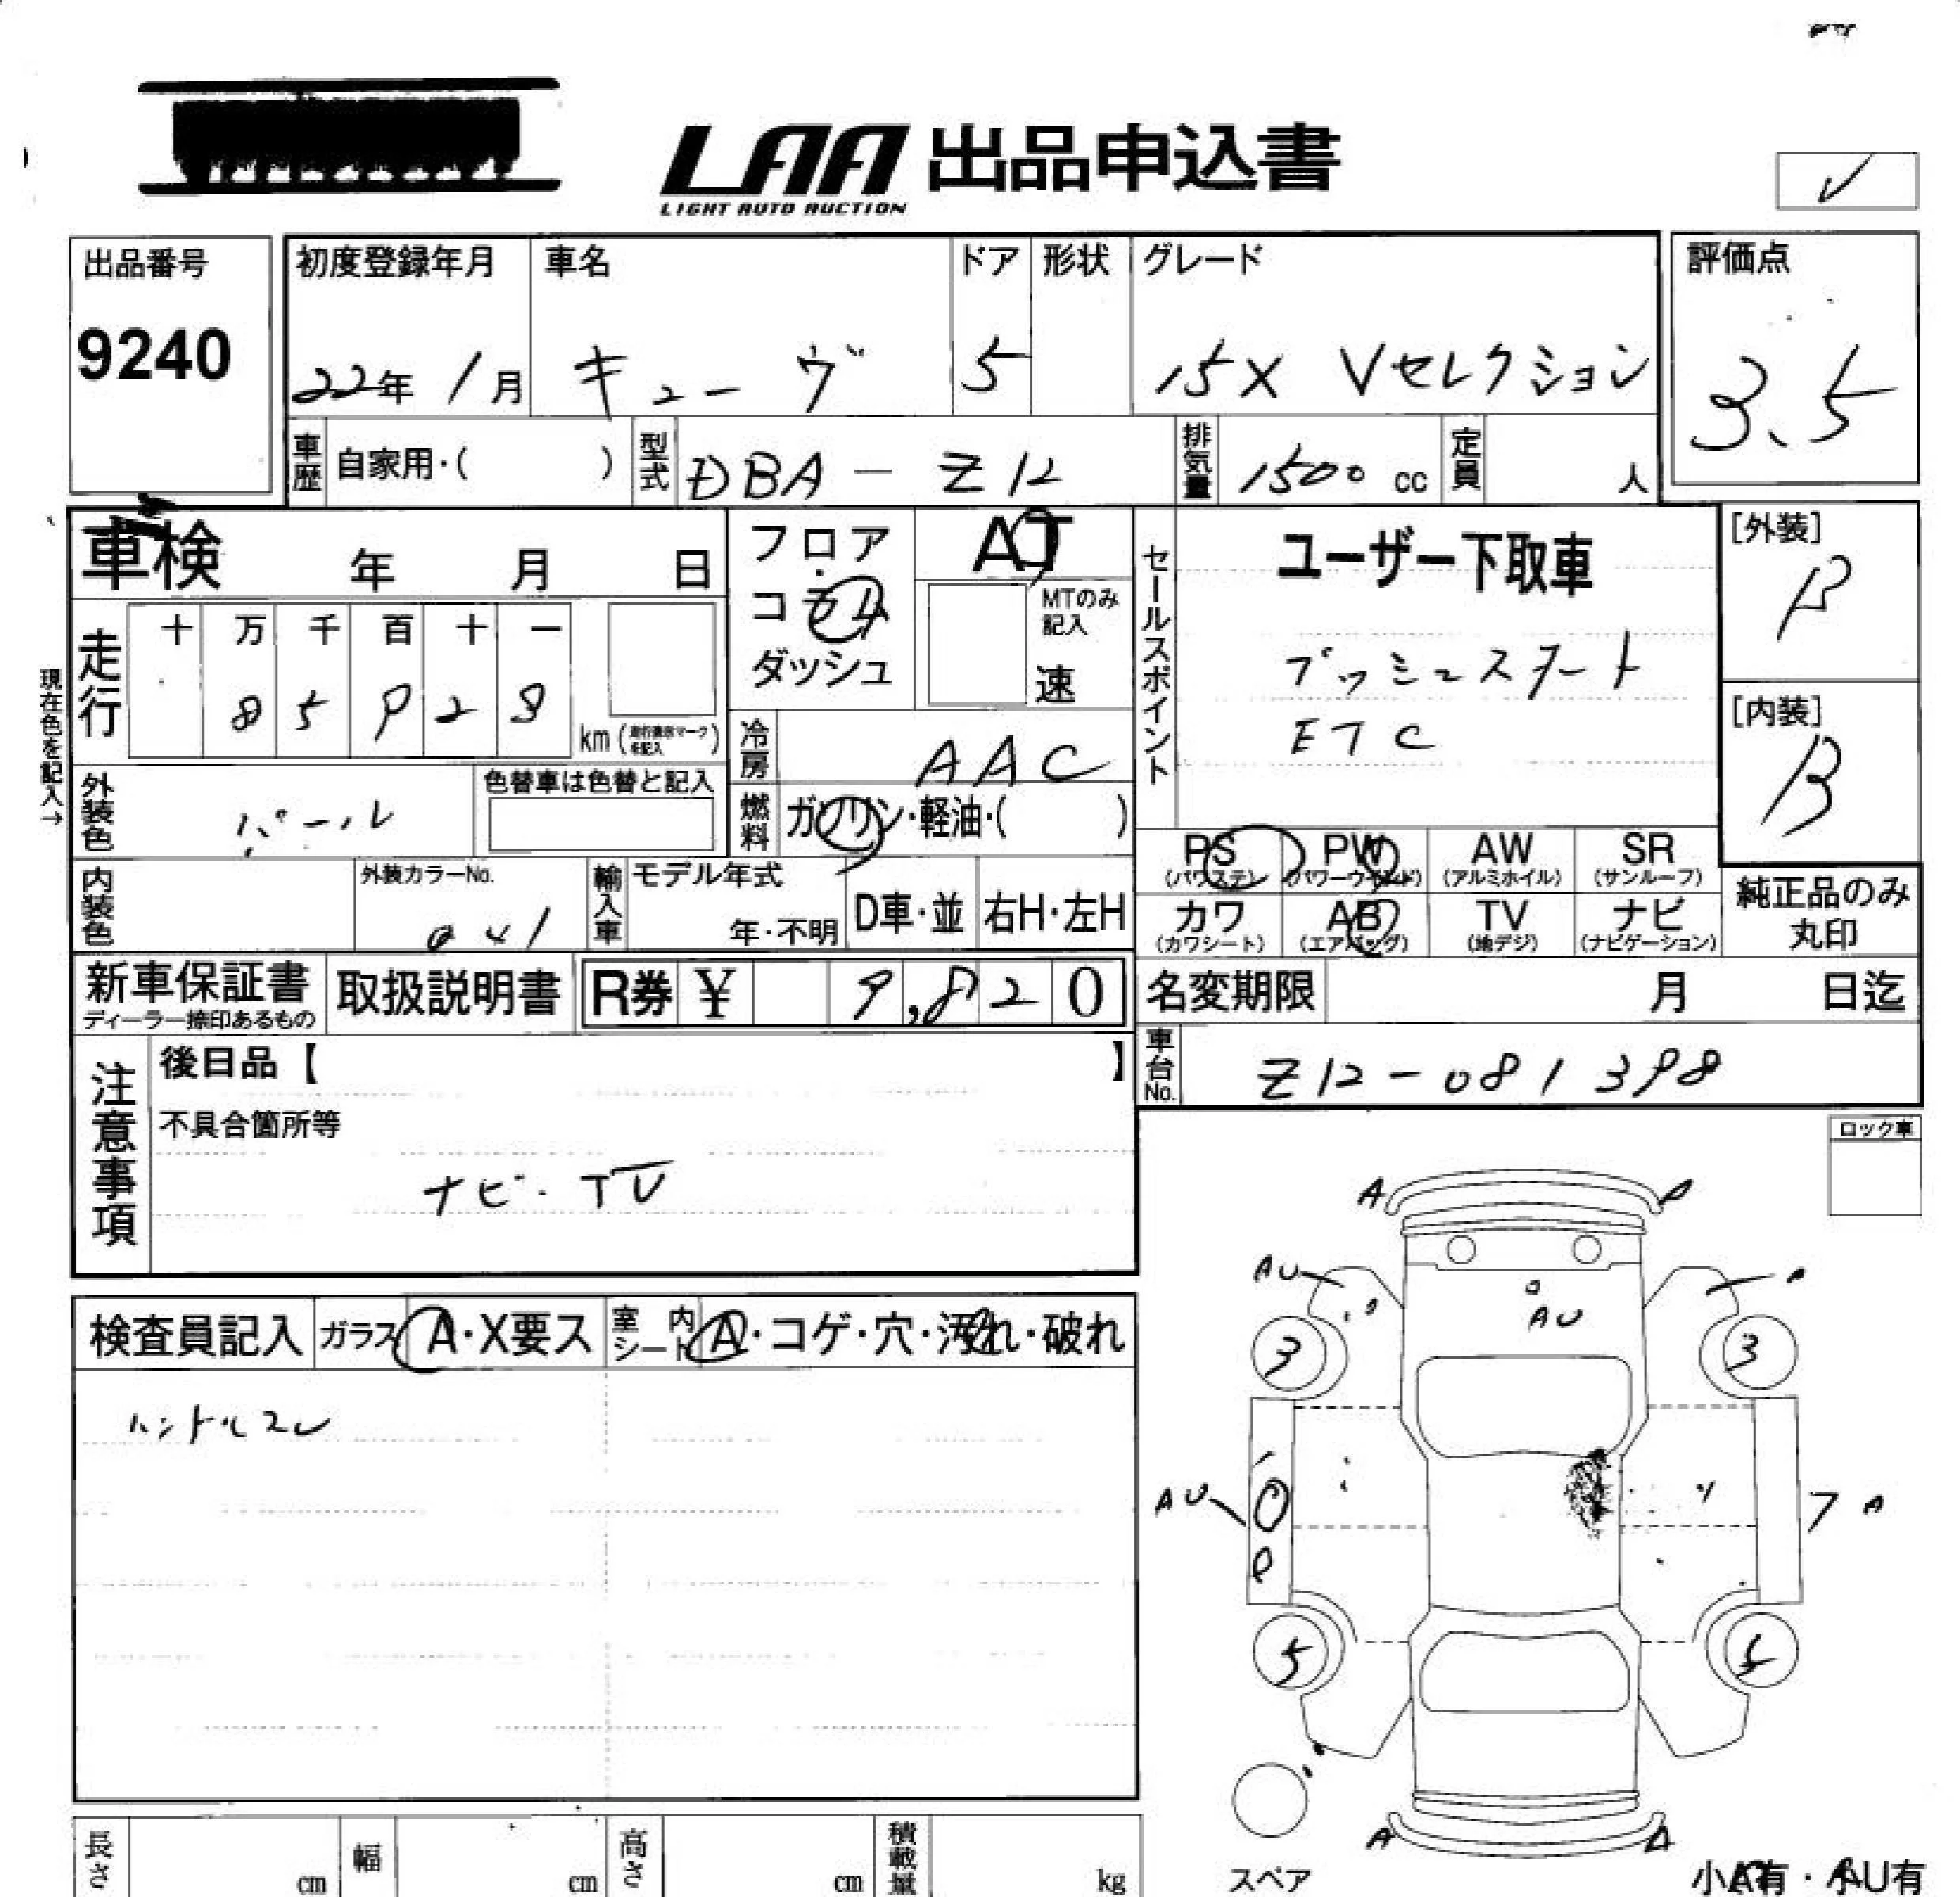 LAA 出品申込書
LIGHT AUTO AUCTION
出品番号
9240
初度登録年月
22年 1月
車名
キューヴ
ドア
5
形状
グレード
15X Vセレクション
評価点
3.5
車歴
自家用・( )
型式
DBA-Z12
排気量
1500 cc
定員
人
車検 年 月 日
フロア
・
コラム
ダッシュ
AT
MTのみ
記入
速
セールスポイント
ユーザー下取車
プッシュスタート
ETC
[外装]
B
[内装]
B
現在色を記入→
走行
十 万 千 百 十 一
8 5 9 2 8
km (走行表示マークを記入)
冷房
AAC
外装色
パール
色替車は色替と記入
燃料
ガソリン・軽油・( )
PS
(パワステ)
PW
(パワーウインド)
AW
(アルミホイル)
SR
(サンルーフ)
内装色
外装カラーNo.
輸入車
モデル年式
年・不明
D車・並
右H・左H
カワ
(カワシート)
AB
(エアバッグ)
TV
(地デジ)
ナビ
(ナビゲーション)
純正品のみ
丸印
新車保証書
ディーラー捺印あるもの
取扱説明書
R券 ¥ 9,820
名変期限 月 日迄
車台No.
Z12-081398
注意事項
後日品【 】
不具合箇所等
ナビ・TV
ロック車
検査員記入
ガラス A・X要ス
室内シート A・コゲ・穴・汚れ・破れ
ハンドルスレ
A
A
AU
A
AU
3
3
AU
A
5
5
A
A
スペア
小A有・小U有
長さ
cm
幅
cm
高さ
cm
積載量
kg